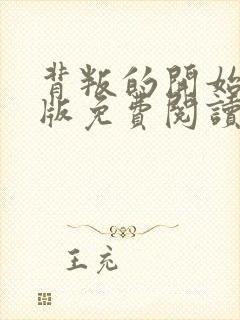 背叛的開始
版免費閱讀
王充